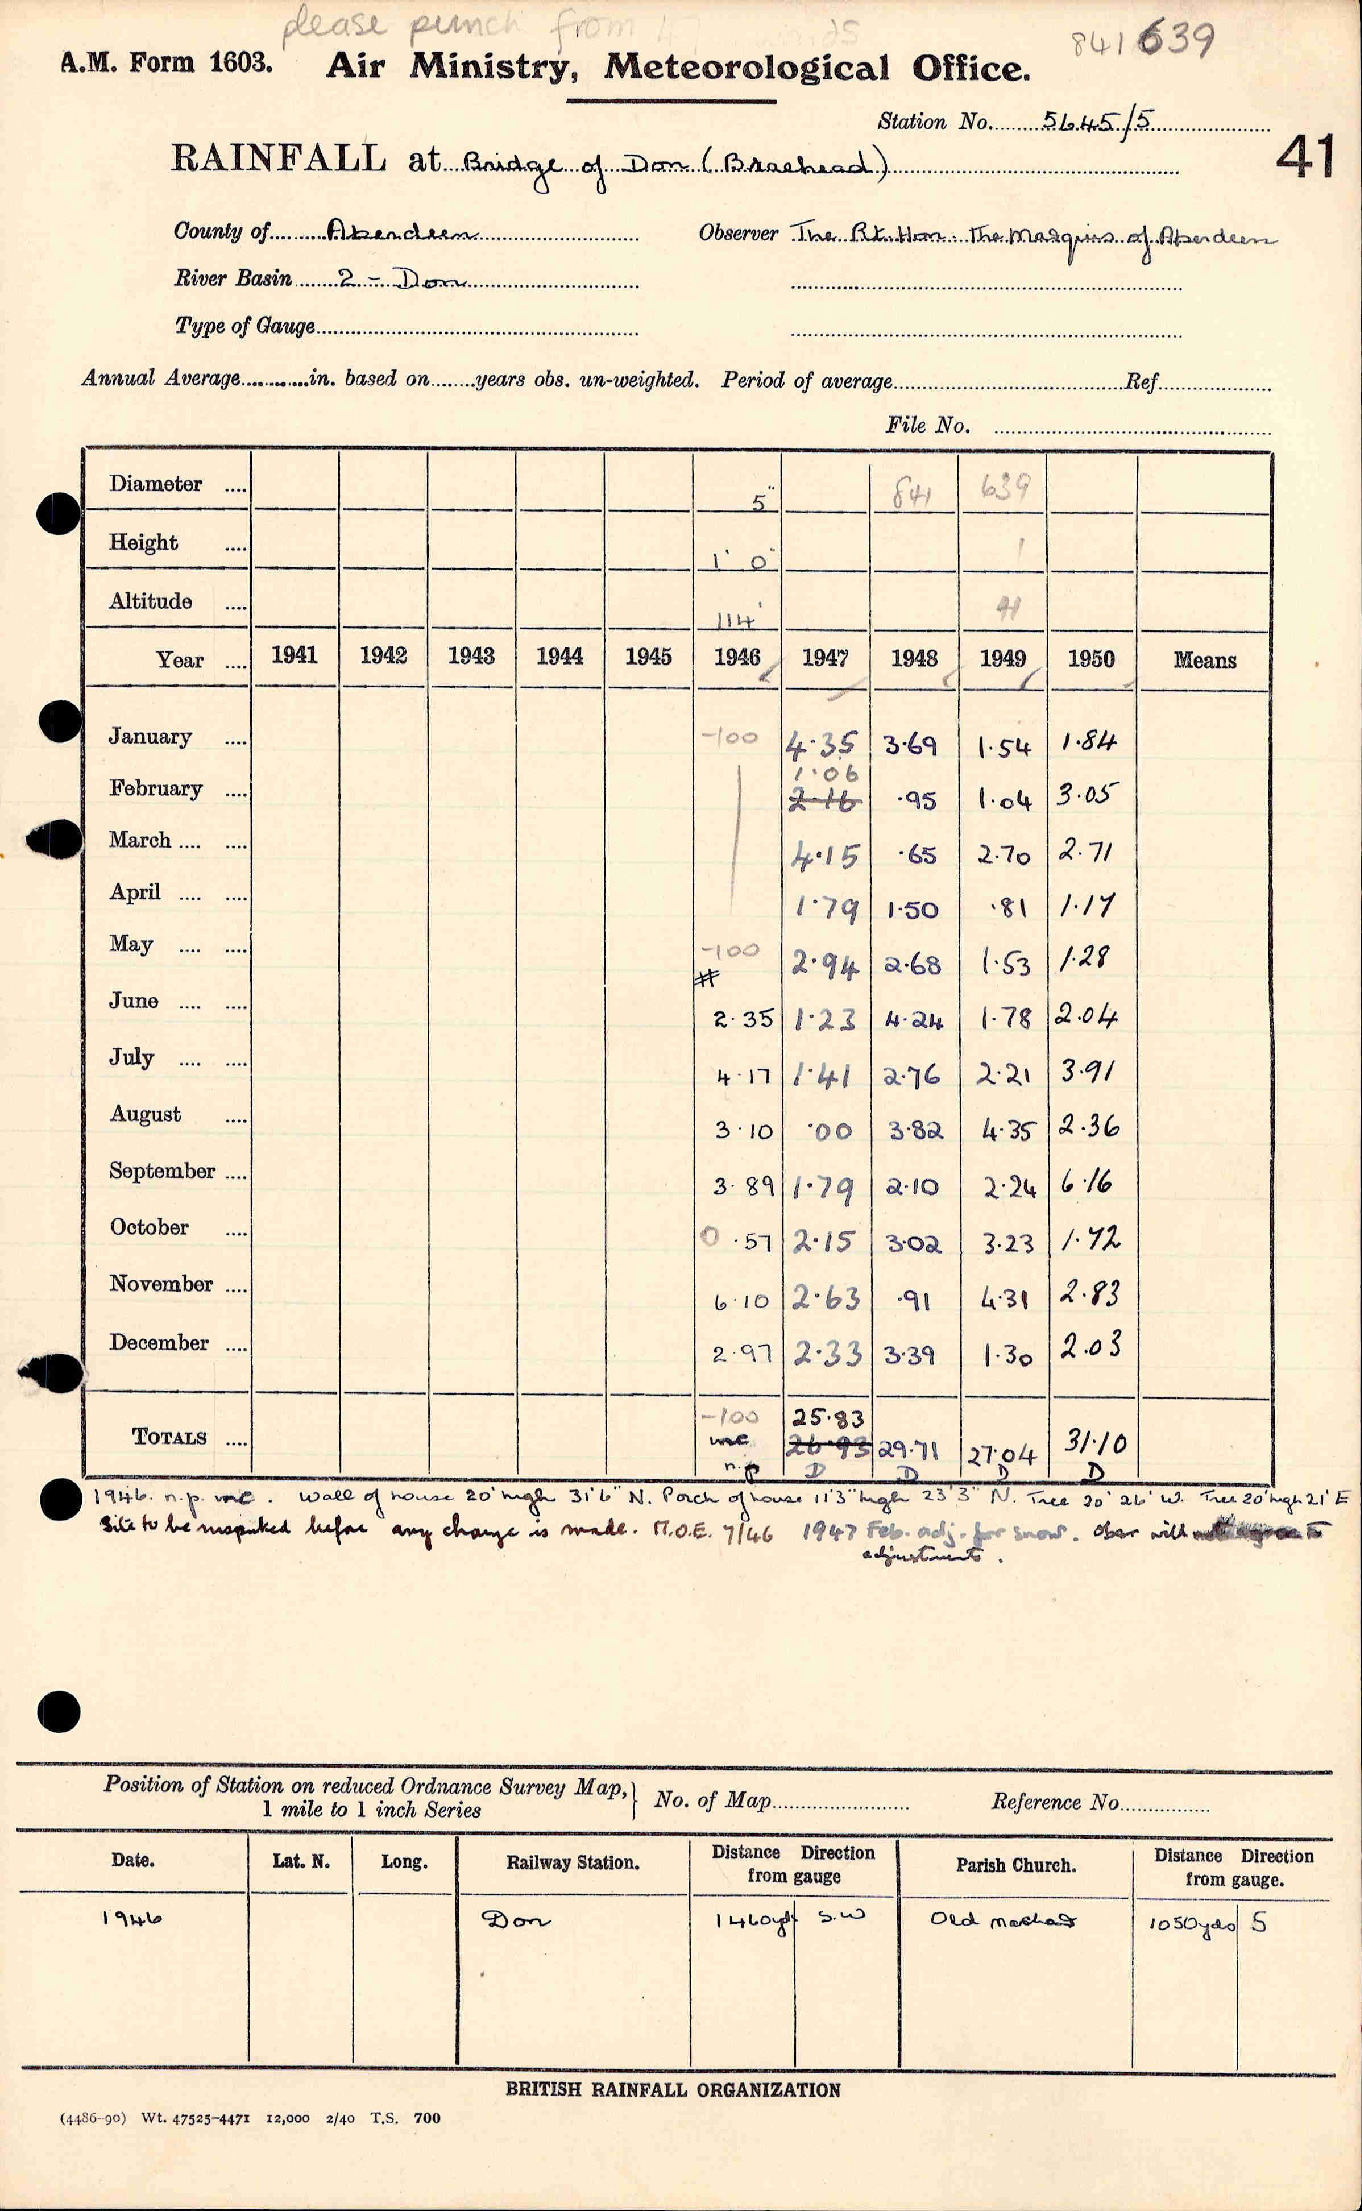 please punch from
841639
A.M. Form 1603. Air Ministry, Meteorological Office.
Station No. 5645/5
RAINFALL at Bridge of Don (Braehead)
41
County of Aberdeen Observer The Rt. Hon. The Marquis of Aberdeen
River Basin 2 - Don
Type of Gauge
Annual Average in. based on years obs. un-weighted. Period of average Ref.
File No.
Diameter .... 5" 841 639
Height .... 1' 0" 1
Altitude .... 114' 41
Year .... 1941 1942 1943 1944 1945 1946 1947 1948 1949 1950 Means
January .... -100 4.35 3.69 1.54 1.84
1.06
February .... 2.16 .95 1.04 3.05
March .... .... 4.15 .65 2.70 2.71
April .... .... 1.79 1.50 .81 1.17
May .... .... -100 2.94 2.68 1.53 1.28
#
June .... .... 2.35 1.23 4.24 1.78 2.04
July .... .... 4.17 1.41 2.76 2.21 3.91
August .... 3.10 .00 3.82 4.35 2.36
September .... 3.89 1.79 2.10 2.24 6.16
October .... 0.57 2.15 3.02 3.23 1.72
November .... 6.10 2.63 .91 4.31 2.83
December .... 2.97 2.33 3.39 1.30 2.03
-100 25.83
TOTALS .... inc 26.93 29.71 27.04 31.10
n.p D D D D
1946. n.p. inc. Wall of house 20' high 31'6" N. Porch of house 11'3" high 23'3" N. Tree 20' 26' W. Tree 20' high 21' E
Site to be inspected before any change is made. M.O.E. 7/46 1947 Feb. adj. for snow. Obser will to
adjustments.
Position of Station on reduced Ordnance Survey Map, 1 mile to 1 inch Series } No. of Map Reference No.
Date. Lat. N. Long. Railway Station. Distance Direction from gauge Parish Church. Distance Direction from gauge.
1946 Don 1460yds S.W Old Machar 1050yds S
BRITISH RAINFALL ORGANIZATION
(4486-90) Wt. 47525-4471 12,000 2/40 T.S. 700